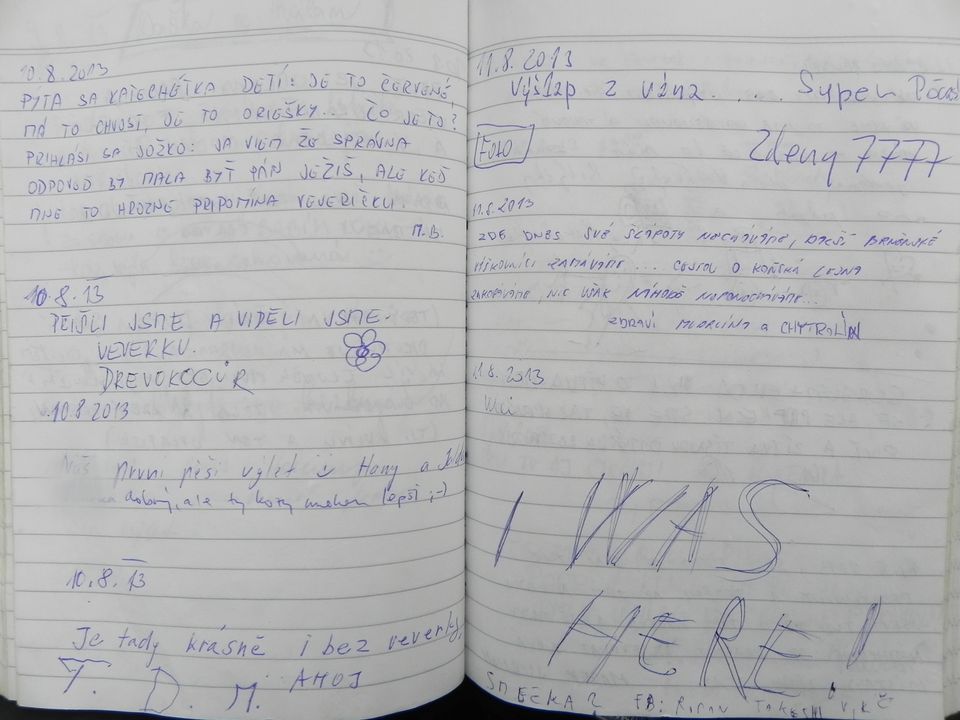 10.8.2013
PÝTA SA KATECHÉTKA DETÍ: JE TO ČERVENÉ,
MÁ TO CHVOST, JE TO ORIEŠKY... ČO JE TO?
PRIHLÁSI SA JOŽKO: JA VIEM ŽE SPRÁVNA
ODPOVEĎ BY MALA BYŤ PÁN JEŽIŠ, ALE KEĎ
MNE TO HROZNE PRIPOMÍNA VEVERIČKU.
M.B.
10.8.13
PŘIŠLI JSME A VIDĚLI JSME
VEVERKU.
DREVOKOCÚR
10.8 2013
Náš první pěší výlet Hany a
dobrý, ale ty kozy lepší ;-)
10.8.13
Je tady krásně i bez veverky.
T. D. M. AHOJ
11.8.2013
Výšlap z vína.... Super
FOTO
Zdeny 7777
11.8.2013
ZDE DNES SVÉ ŠLÁPOTY NECHÁVÁME, BRNĚNSKÉ
ZAMÁVÁME... CESTOU O KOŇSKÁ LEJNA
ZAKOPÁVÁME, NIC VŠAK NÁHODĚ NEPONECHÁVÁME...
ZDRAVÍ A CHYTROLÍN
11.8.2013
I WAS
HERE!
SMEČKA 2 FB: